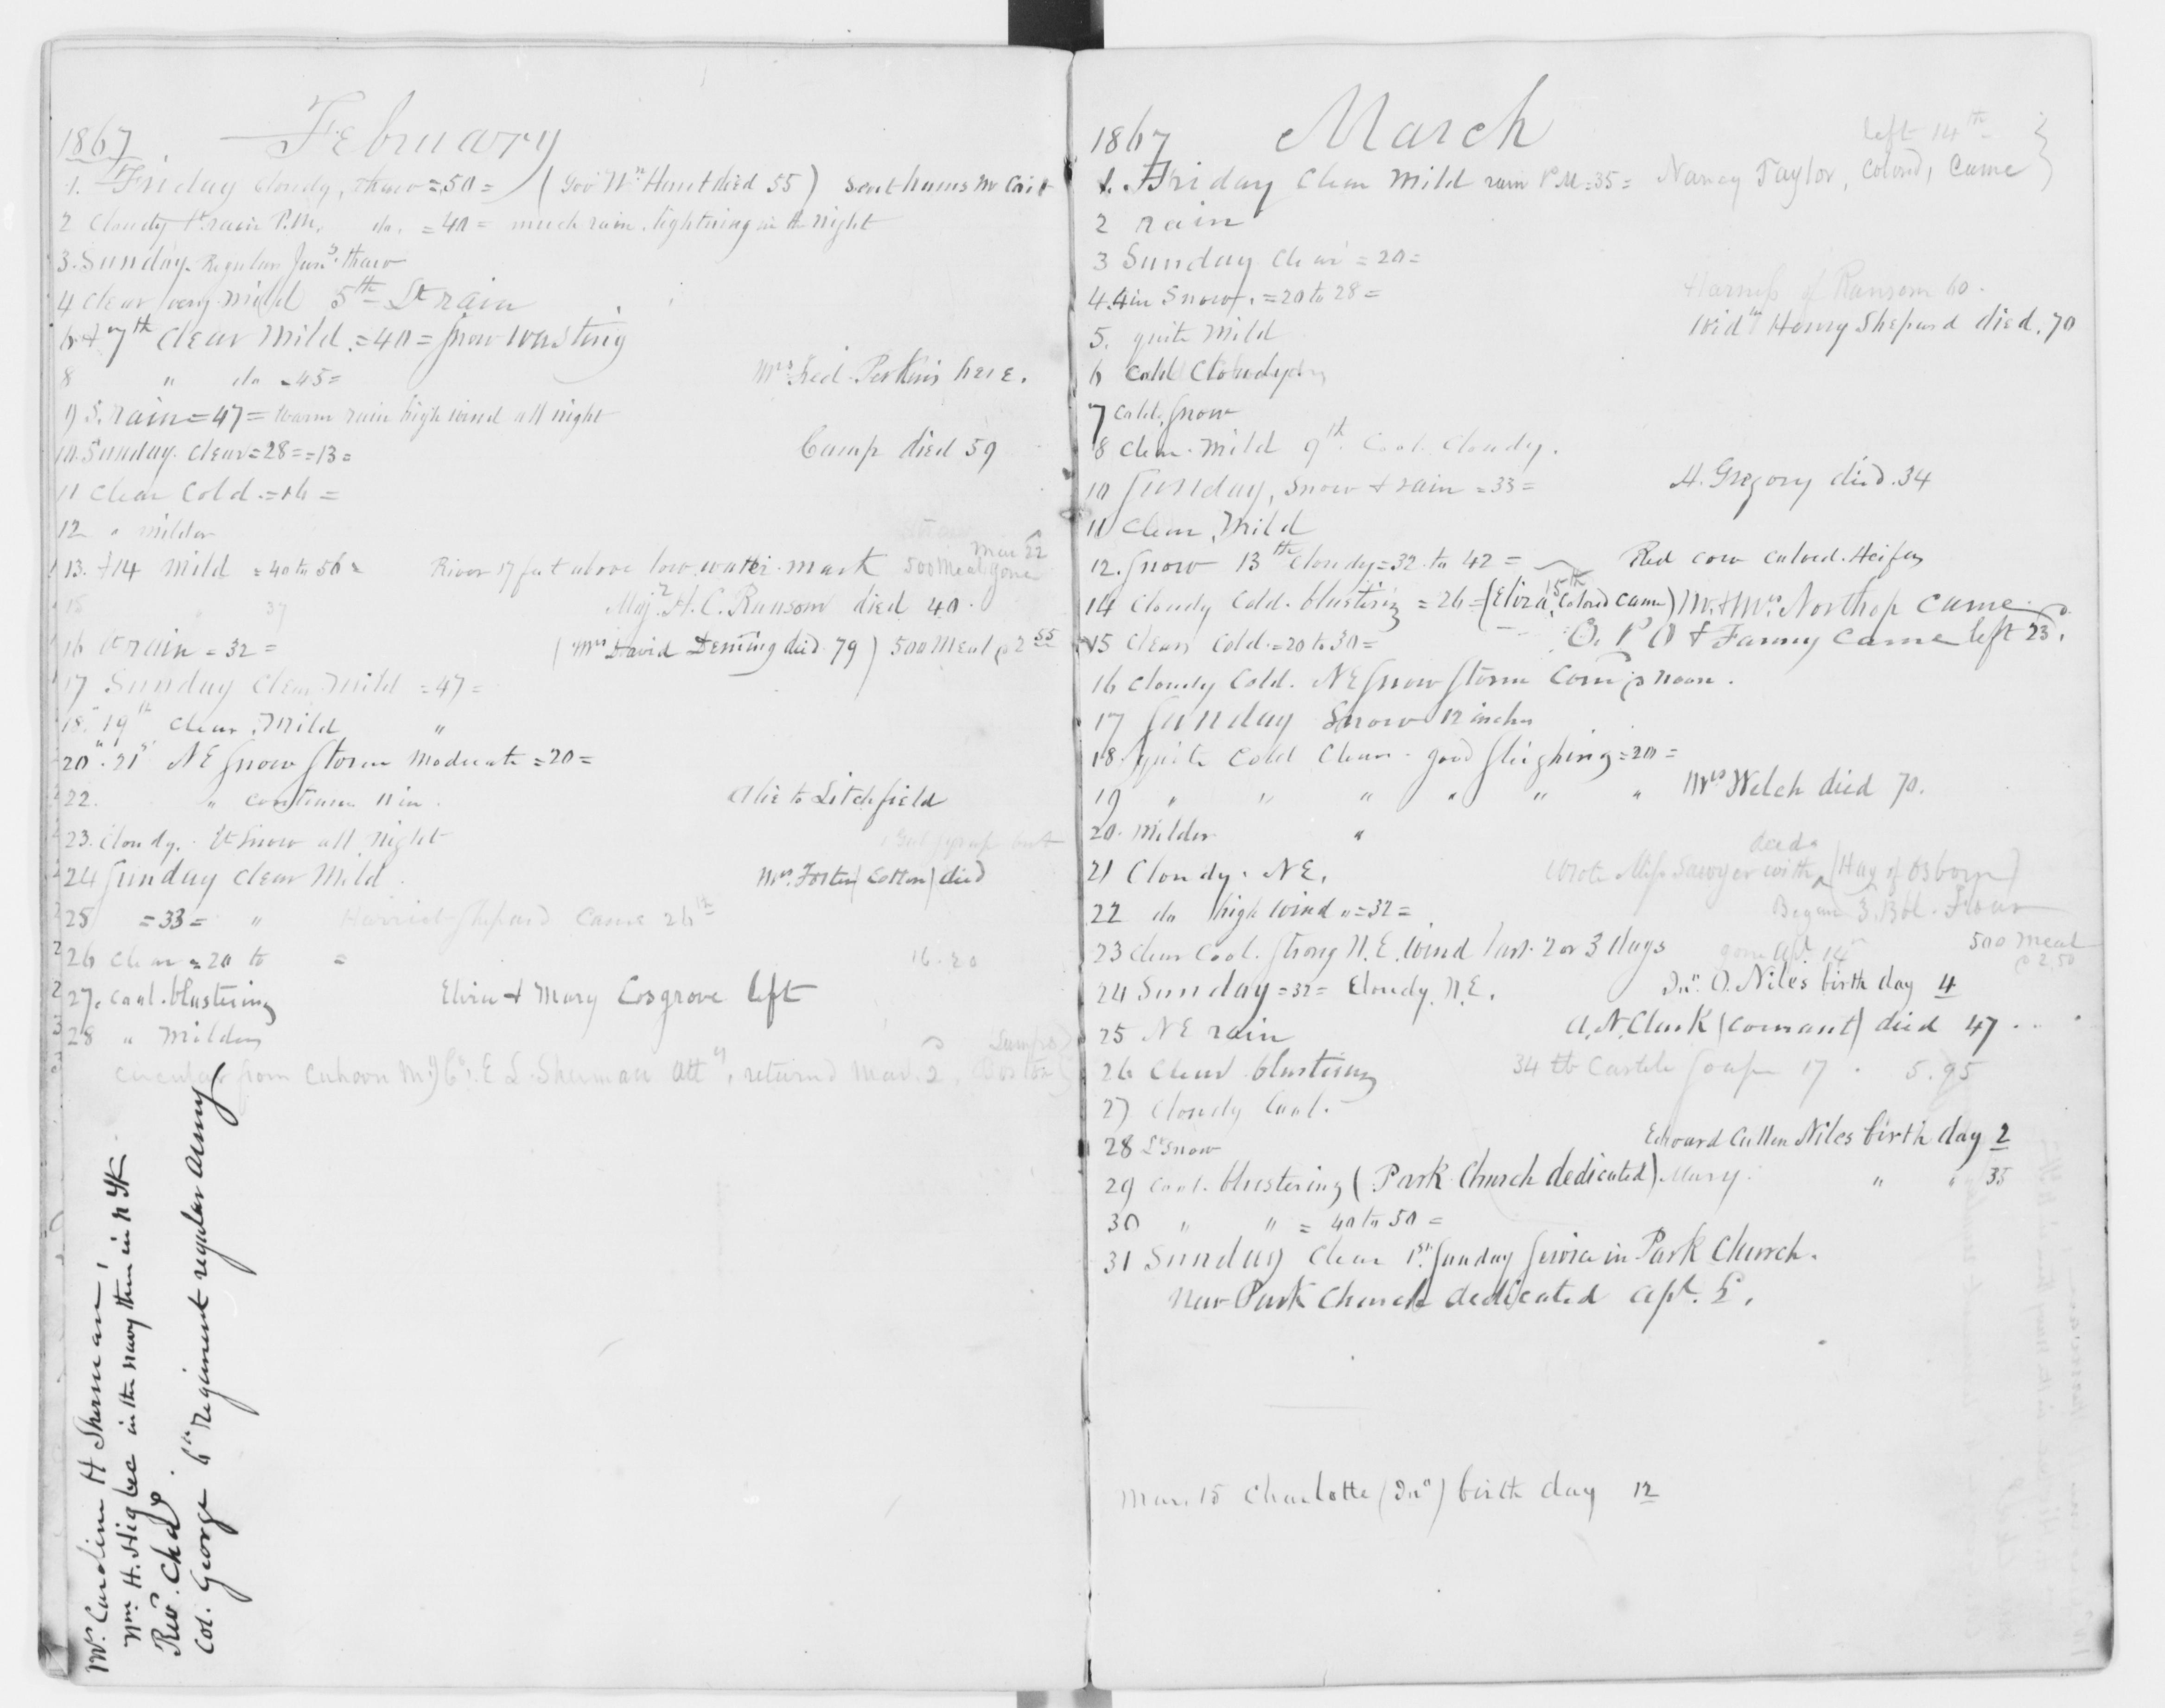 1867 February
1. Friday cloudy, thaw =50= (Gov Wm Hunt died 55) Sent hams Mr
2 Cloudy Lt rain P.M. do. =40= much rain, lightning in the night
3. Sunday. Regular Jany. thaw
4 clear very mild 5th Lt rain
6 & 7th Clear Mild. =40= Snow wasting
8 " do =45= Mrs Fred. Perkins here.
9 S. rain =47= warm rain high wind all night
10. Sunday. Clear =28= =13= Camp died 59
11 Clear Cold. =16=
12 " milder
Mar 22
13. & 14 Mild =40 to 56= River 17 feet above low water mark 500 meal gone
15 " 37 Maj. H. C. Ransom died 40.
16 Lt rain =32= (Mrs David Deming died 79) 500 Meal @ 2 55
17 Sunday Clear Mild =47=
18. 19th Clear, Mild "
20. 21st NE Snow Storm Moderate =20=
22. " continues 11 in. Alie to Litchfield
23. Cloudy. Lt Snow all night
24 Sunday clear Mild. Mrs. Foster (Cotton) died
25 =33= " Harriet Shepard Came 26th
26 clear =20 to = 16.20
27. Cool. blustering Elvira & Mary Cosgrove left
28 " Milder
circular from Cahoon Mfg Co. E L. Sherman Atty, returned Mar. 2. Boston
Mrs. Caroline H Sherman,
Wm. H. Higbee in the navy then in N Yk.
Rev. Chas.
Col. George 6th regiment regular army
1867 March
left 14th
1. Friday Clear Mild rain P.M =35= Nancy Taylor, Colored, Came
2 rain
3 Sunday Clear =20=
4. 4 in Snow. =20 to 28= Harness of Ransom 60.
5. quite Mild Wid Henry Shepard died. 70
6 Cold Cloudy
7 Cold. Snow
8 Clear. Mild 9th Cool Cloudy.
10 Sunday, Snow & rain =33= H. Gregory died. 34
11 Clear, Mild
12. Snow 13th Cloudy =32 to 42= Red cow calved. Heifer
14 Cloudy Cold. blustering =26= (Eliza, Colored came 15th) Mr. & Mrs. Northop came
15 Clear Cold. =20 to 30= O. P. O & Fanny Came left 23.
16 Cloudy Cold. NE Snow Storm Comg @ noon.
17 Sunday Snow 12 inches
18. quite Cold Clear. good Sleighing =20=
19 " " " " " " Mrs Welch died 70.
20. Milder "
deeds
21 Cloudy. NE. Wrote Miss Sawyer with (Hay of Osborn)
22 do high wind =32= Began 3. Bbl. Flour
23 Clear Cool. Strong N.E. Wind last 2 or 3 days gone Ap. 14 500 meal @ 2.50
24 Sunday =32= Cloudy N.E. Jno. O. Niles birth day 4
25 NE rain A. N. Clark (Courant) died 47.
26 Clear blustering 34 lb Castile Soap 17. 5.95
27 Cloudy Cool.
28 Lt Snow Edward Cullen Niles birth day 2
29 Cool. blustering (Park Church dedicated) Mary " " 35
30 " " =40 to 50=
31 Sunday Clear 1st. Sunday Service in Park Church.
New Park Church dedicated Apl.
Mar. 15 Charlotte (Jno) birth day 12